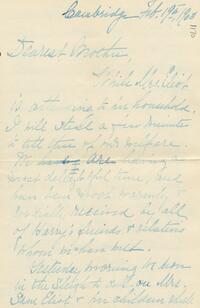 Cambridge Feb. 19th, 1903
Dearest Mother,
While Mrs. Eliot
is attending to her household
I will steal a few minutes
to tell you of our welfare.
We are having a
most delightful time, and
have been most warmly &
cordially received by all
of Harry's friends & relations
whom we have met.
morning we
in the sleigh to call on Mrs.
Sam Eliot &